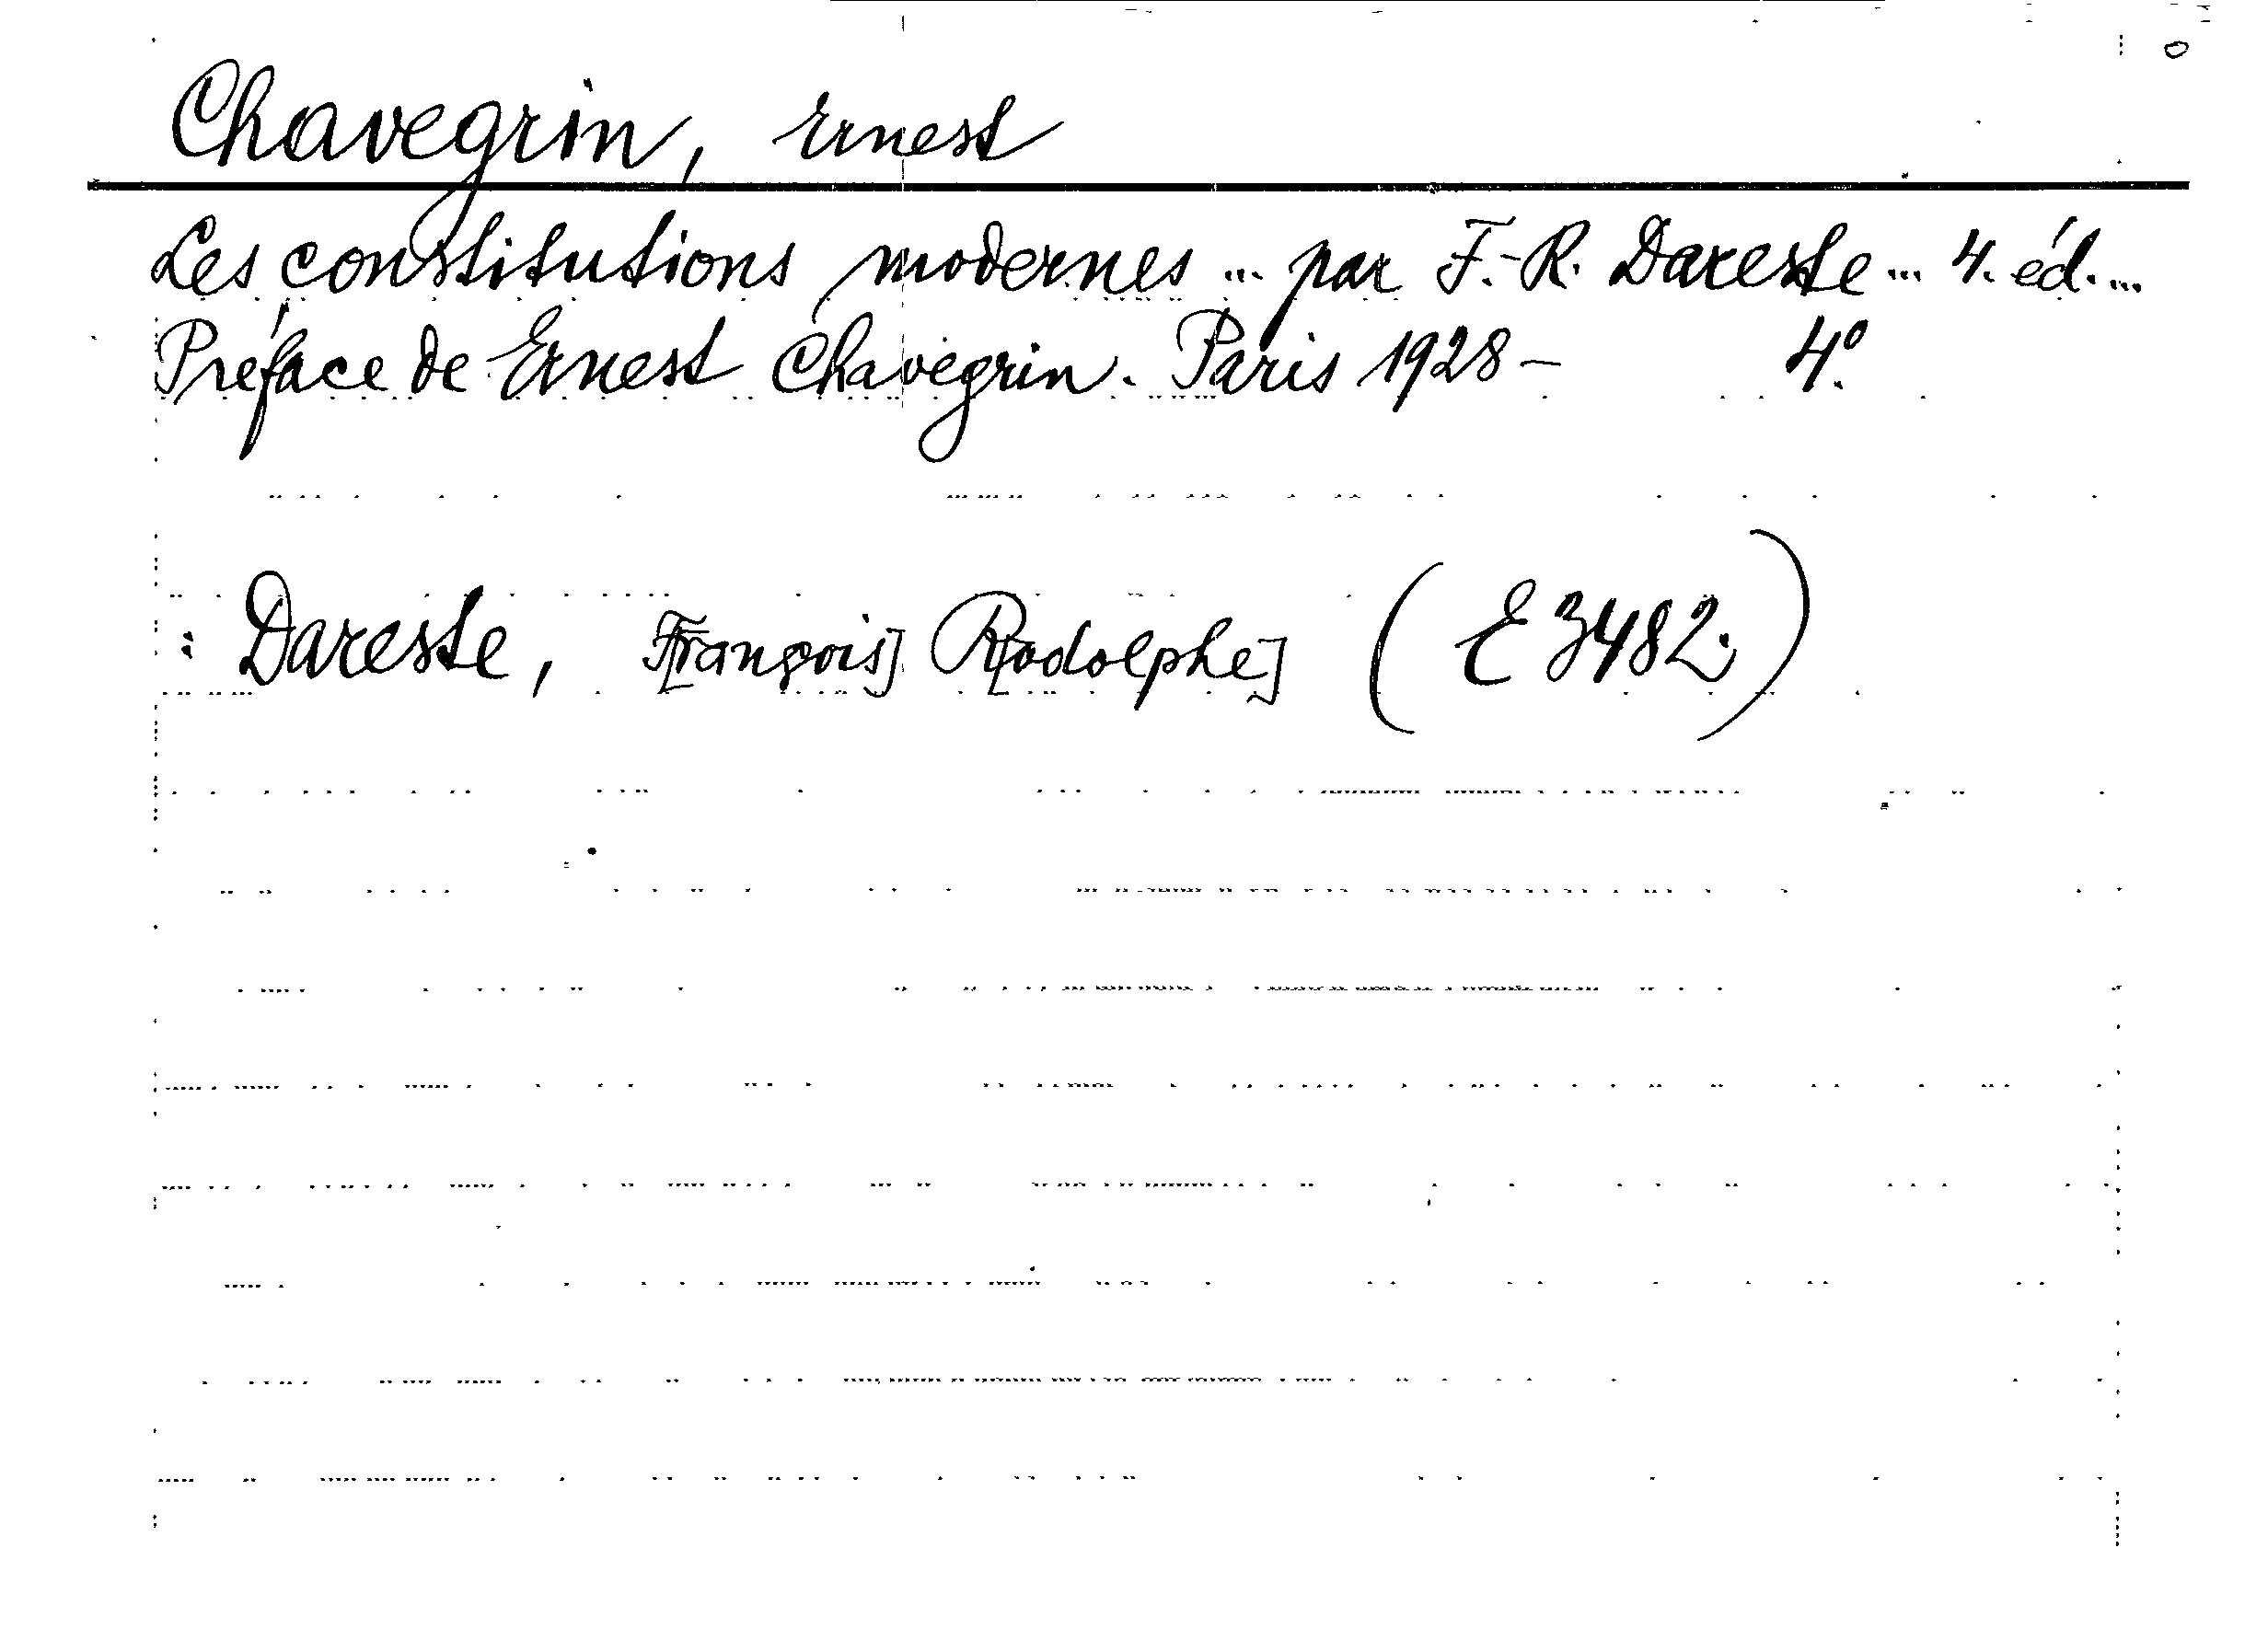 Chavegrin, Ernest
Les constitutions modernes ... par F.-R. Dareste ... 4. éd. ...
Préface de Ernest Chavegrin. Paris 1928 - 4º.
: Dareste, F[rançois] R[odolphe] (E 3482.)